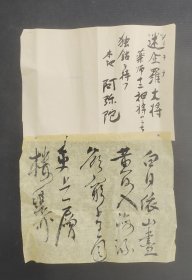 迷企羅大将
薬師十二神将の一
独鈷を持つ
本地 阿弥陀
白日依山尽
黄河入海流
欲窮千里目
更上一層
楼